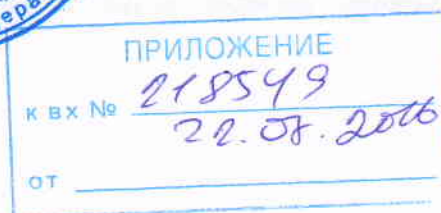 ера
ПРИЛОЖЕНИЕ
к вх № 218549
22.08.2016
от